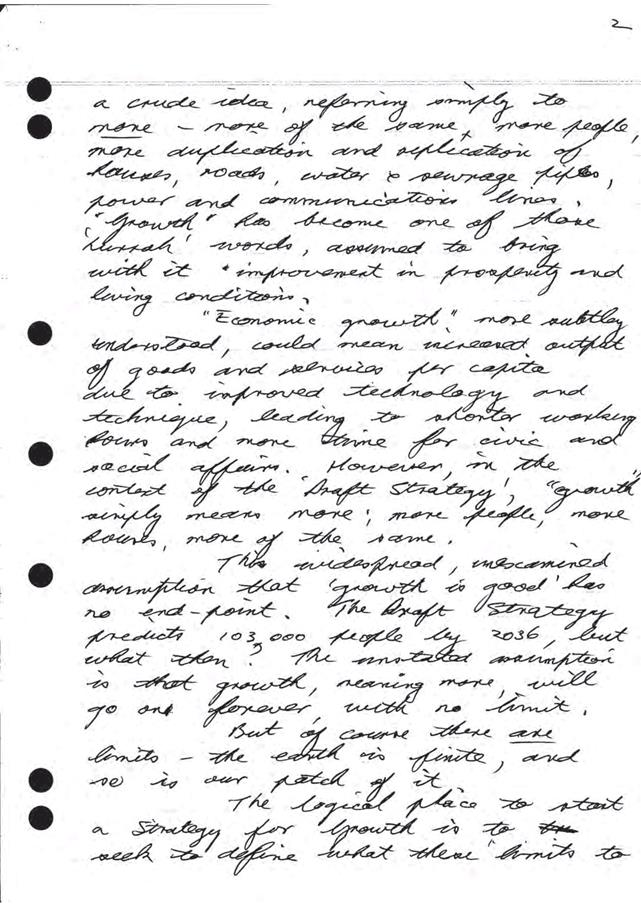 2
a crude idea, referring simply to
more – more of the same, more people,
more duplication and replication of
houses, roads, water & sewrage pipes,
power and communications lines.
"Growth" has become one of those
'hurrah' words, assumed to bring
with it improvement in prosperity and
living conditions.
"Economic growth" more subtley
understood, could mean increased output
of goods and services per capita
due to improved technology and
technique, leading to shorter working
hours and more time for civic and
social affairs. However, in the
context of the 'Draft Strategy', "growth"
simply means more; more people, more
houses, more of the same.
This widespread, unexamined
assumption that 'growth is good' has
no end-point. The Draft Strategy
predicts 103,000 people by 2036, but
what then? The unstated assumption
is that growth, meaning more, will
go on forever, with no limit.
But of course there are
limits – the earth is finite, and
so is our patch of it
The logical place to start
a Strategy for Growth is to
seek to define what these limits to